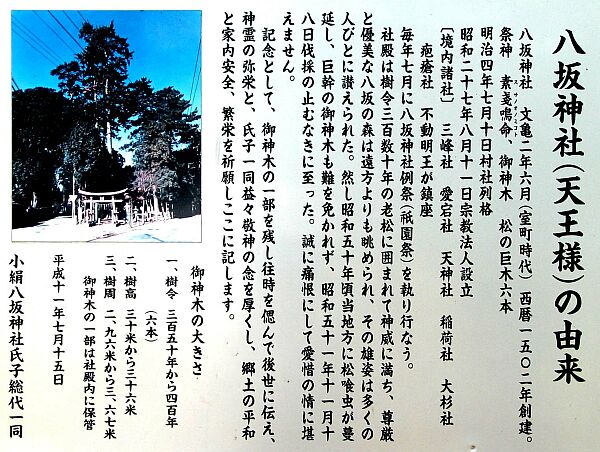 八坂神社（天王様）の由来
八坂神社　文亀二年六月（室町時代）　西暦一五〇二年創建。
祭神　素戔嗚命、御神木　松の巨木六本
スサノオノミコト
明治四年七月十日村社列格
昭和二十七年八月十一日宗教法人設立
〔境内諸社〕　三峰社　愛宕社　天神社　稲荷社　大杉社
疱瘡社　不動明王が鎮座
毎年七月に八坂神社例祭（祇園祭）を執り行なう。
社殿は樹令三百数十年の老松に囲まれて神威に満ち、尊厳
と優美な八坂の森は遠方よりも眺められ、その雄姿は多くの
人びとに讃えられた。然し昭和五十年頃当地方に松喰虫が蔓
延し、巨幹の御神木も難を免かれず、昭和五十一年十一月十
八日伐採の止むなきに至った。誠に痛恨にして愛惜の情に堪
えません。
記念として、御神木の一部を残し往時を偲んで後世に伝え、
神霊の弥栄と、氏子一同益々敬神の念を厚くし、郷土の平和
と家内安全、繁栄を祈願しここに記します。
御神木の大きさ
一、樹令　三百五十年から四百年
（六本）
二、樹高　三十米から三十六米
三、樹周　二、九六米から三、六七米
御神木の一部は社殿内に保管
平成十一年七月十五日
小絹八坂神社氏子総代一同